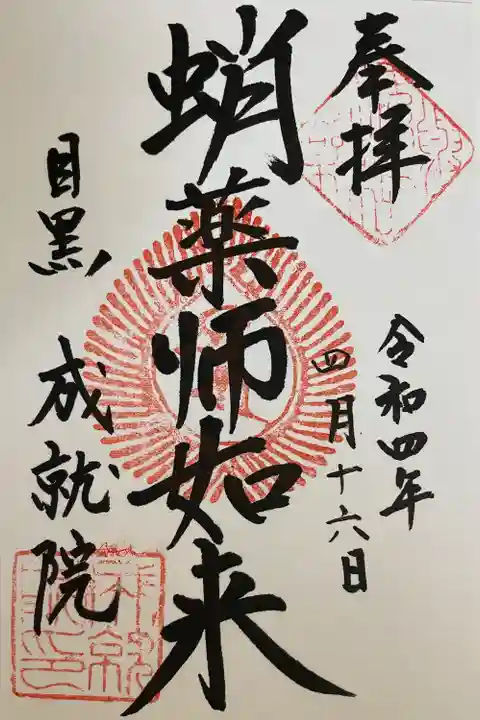 奉拝
令和四年
四月十六日
蛸薬師如来
目黒 成就院